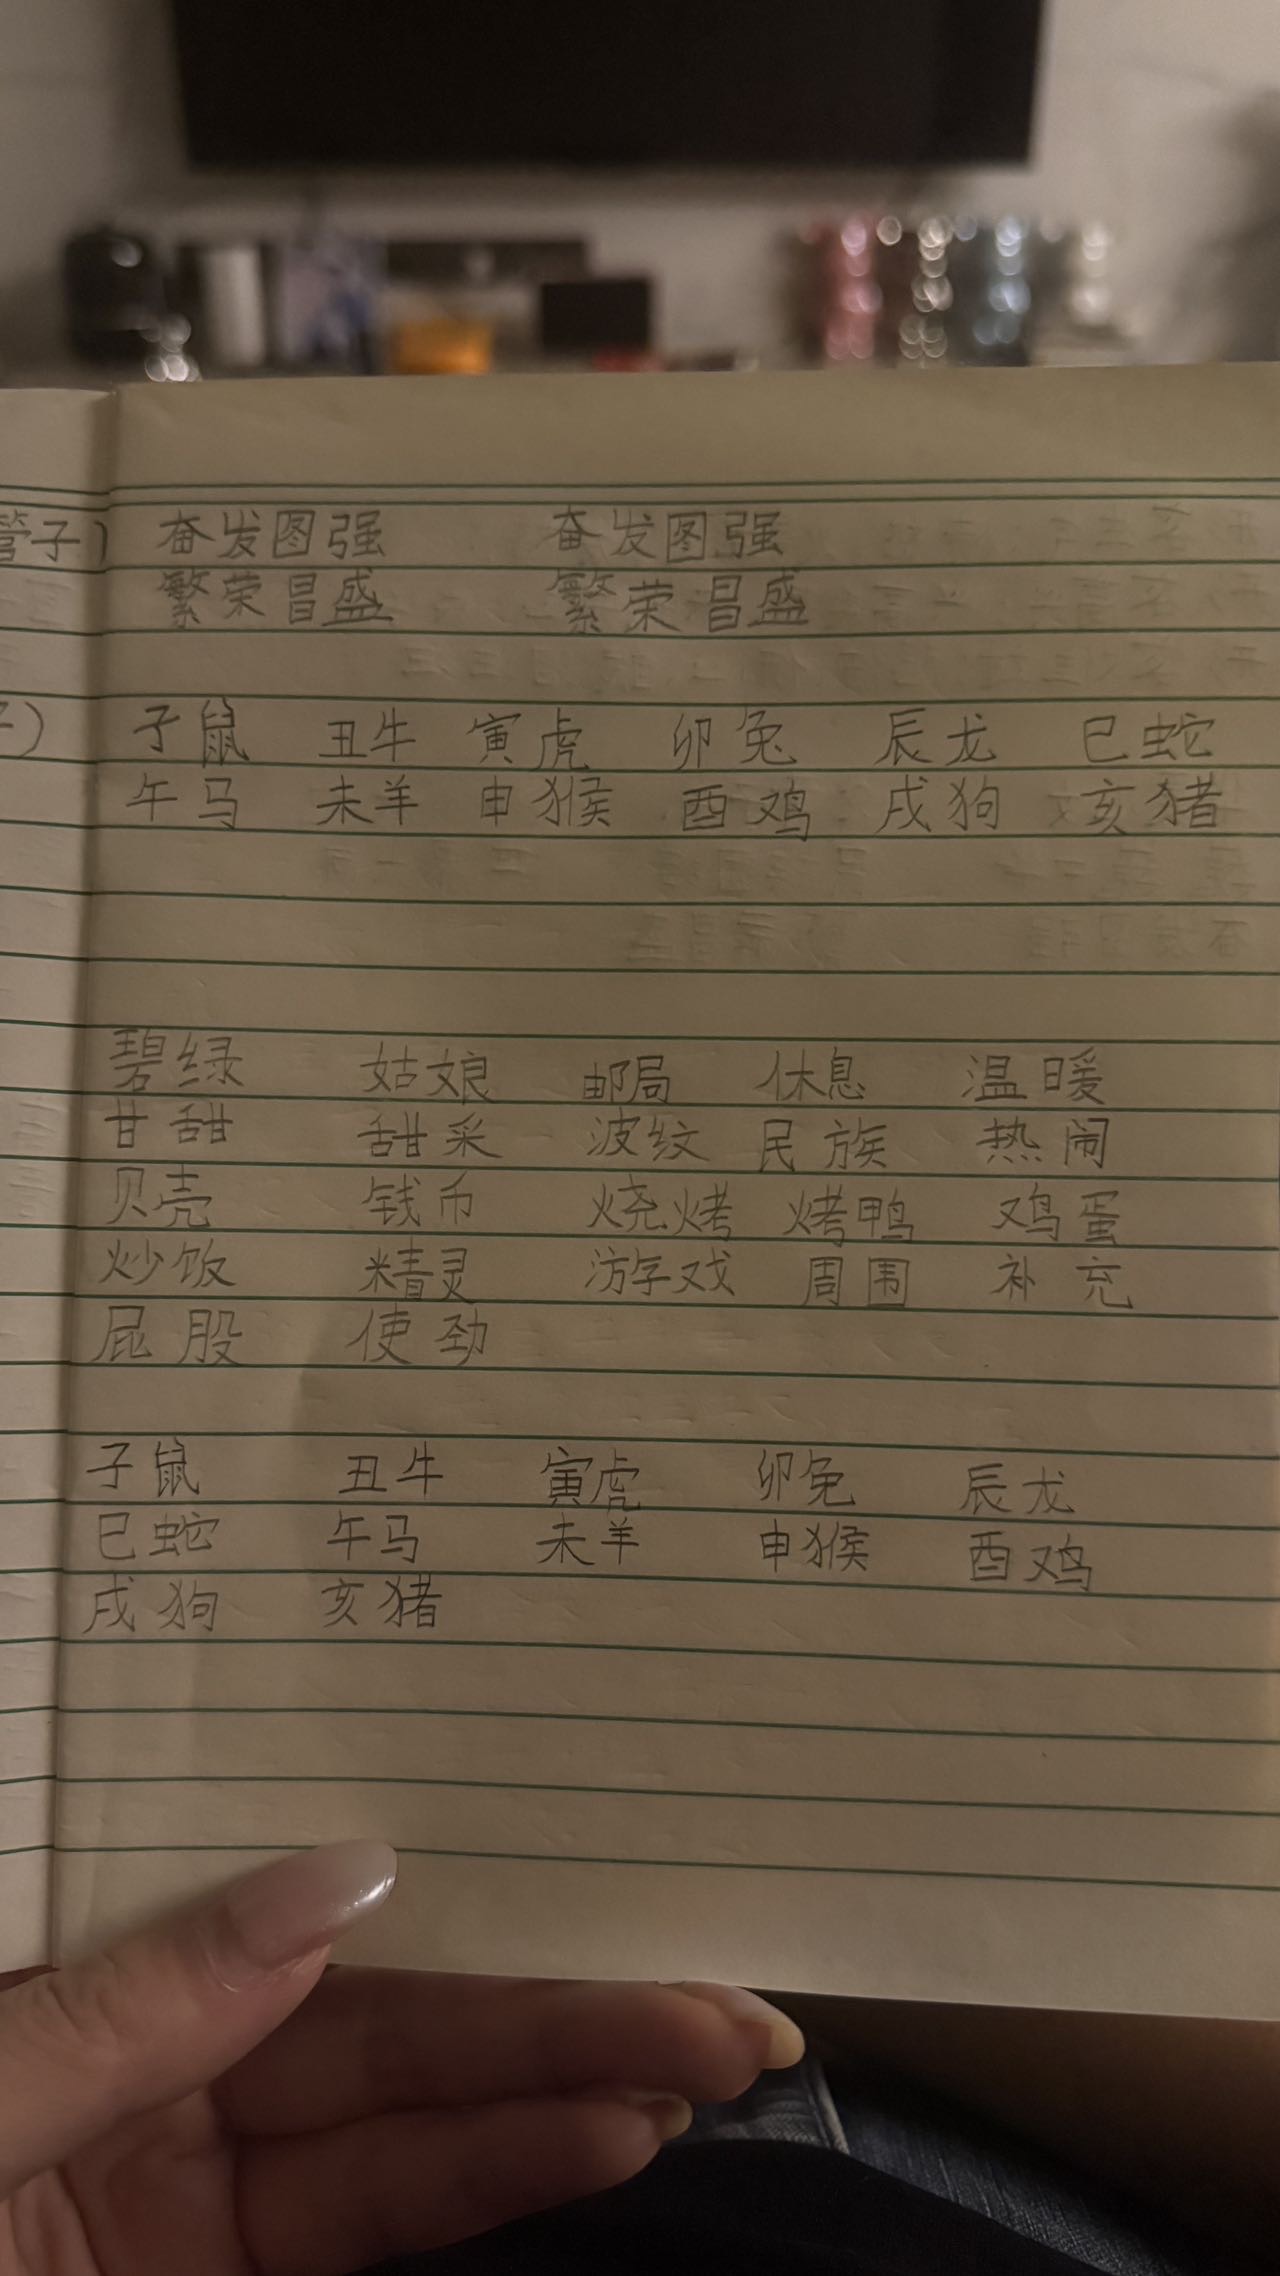 管子) 奋发图强 奋发图强
繁荣昌盛 繁荣昌盛
) 子鼠 丑牛 寅虎 卯兔 辰龙 巳蛇
午马 未羊 申猴 酉鸡 戌狗 亥猪
碧绿 姑娘 邮局 休息 温暖
甘甜 甜菜 波纹 民族 热闹
贝壳 钱币 烧烤 烤鸭 鸡蛋
炒饭 精灵 游戏 周围 补充
屁股 使劲
子鼠 丑牛 寅虎 卯兔 辰龙
巳蛇 午马 未羊 申猴 酉鸡
戌狗 亥猪